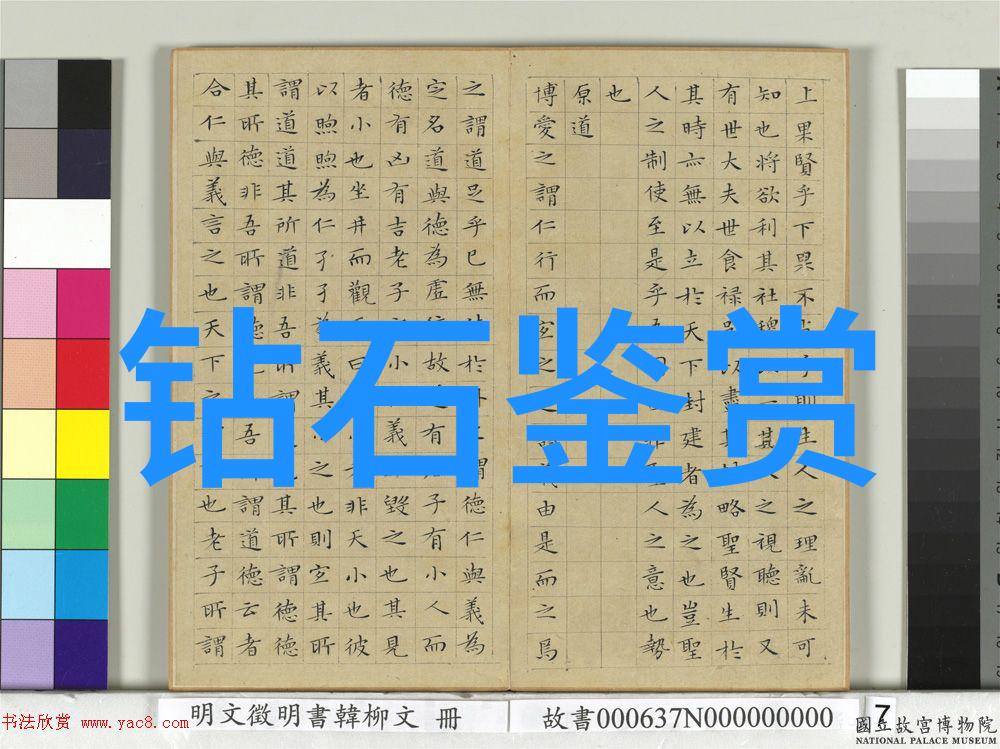 上果賢乎下果不乎則生人之理亂未可
知也將欲利其社稷一其人之視聽則又
有世大夫世食祿邑以盡其封略聖賢生於
其時亦無以立於天下封建者為之也豈聖
人之制使至是乎吾聖人之意也勢
也
原道
博愛之謂仁行而宜之之謂義由是而之焉
之謂道足乎已無於外之謂德仁與義為
定名道與德為虛位故道有子有小人而
德有凶有吉老子小義毀之也其見
者小也坐井而觀曰非天小也彼
以煦煦為仁孑孑為義其之也則宜其所
謂道道其所道非吾所謂其所謂德德
其所德非吾所謂德吾謂道德云者
合仁與義言之也天下之也老子所謂
钻石鉴赏
书法欣赏 www.yac8.com
明文徵明書韓柳文 冊
故書000637N000000000
7
國立故宮博物院
NATIONAL PALACE MUSEUM